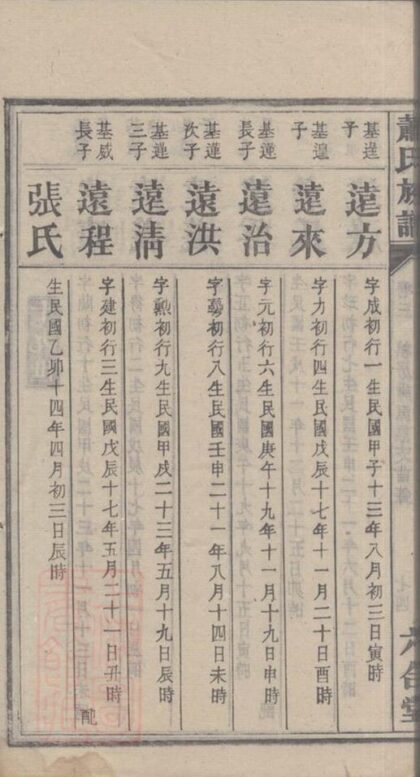 蕭氏族譜
六合堂
基達
子
遠方
字成初行一生民國甲子十三年八月初三日寅時
基遑
子
遠來
字力初行四生民國戊辰十七年十一月二十日酉時
基蓮
長子
遠治
字元初行六生民國庚午十九年十一月十九日申時
基蓮
次子
遠洪
字發初行八生民國壬申二十一年八月十四日未時
基蓮
三子
遠淸
字勲初行九生民國甲戍二十三年五月十九日辰時
基威
長子
遠程
字建初行三生民國戊辰十七年五月二十一日丑時
配
張氏
生民國乙卯十四年四月初三日辰時